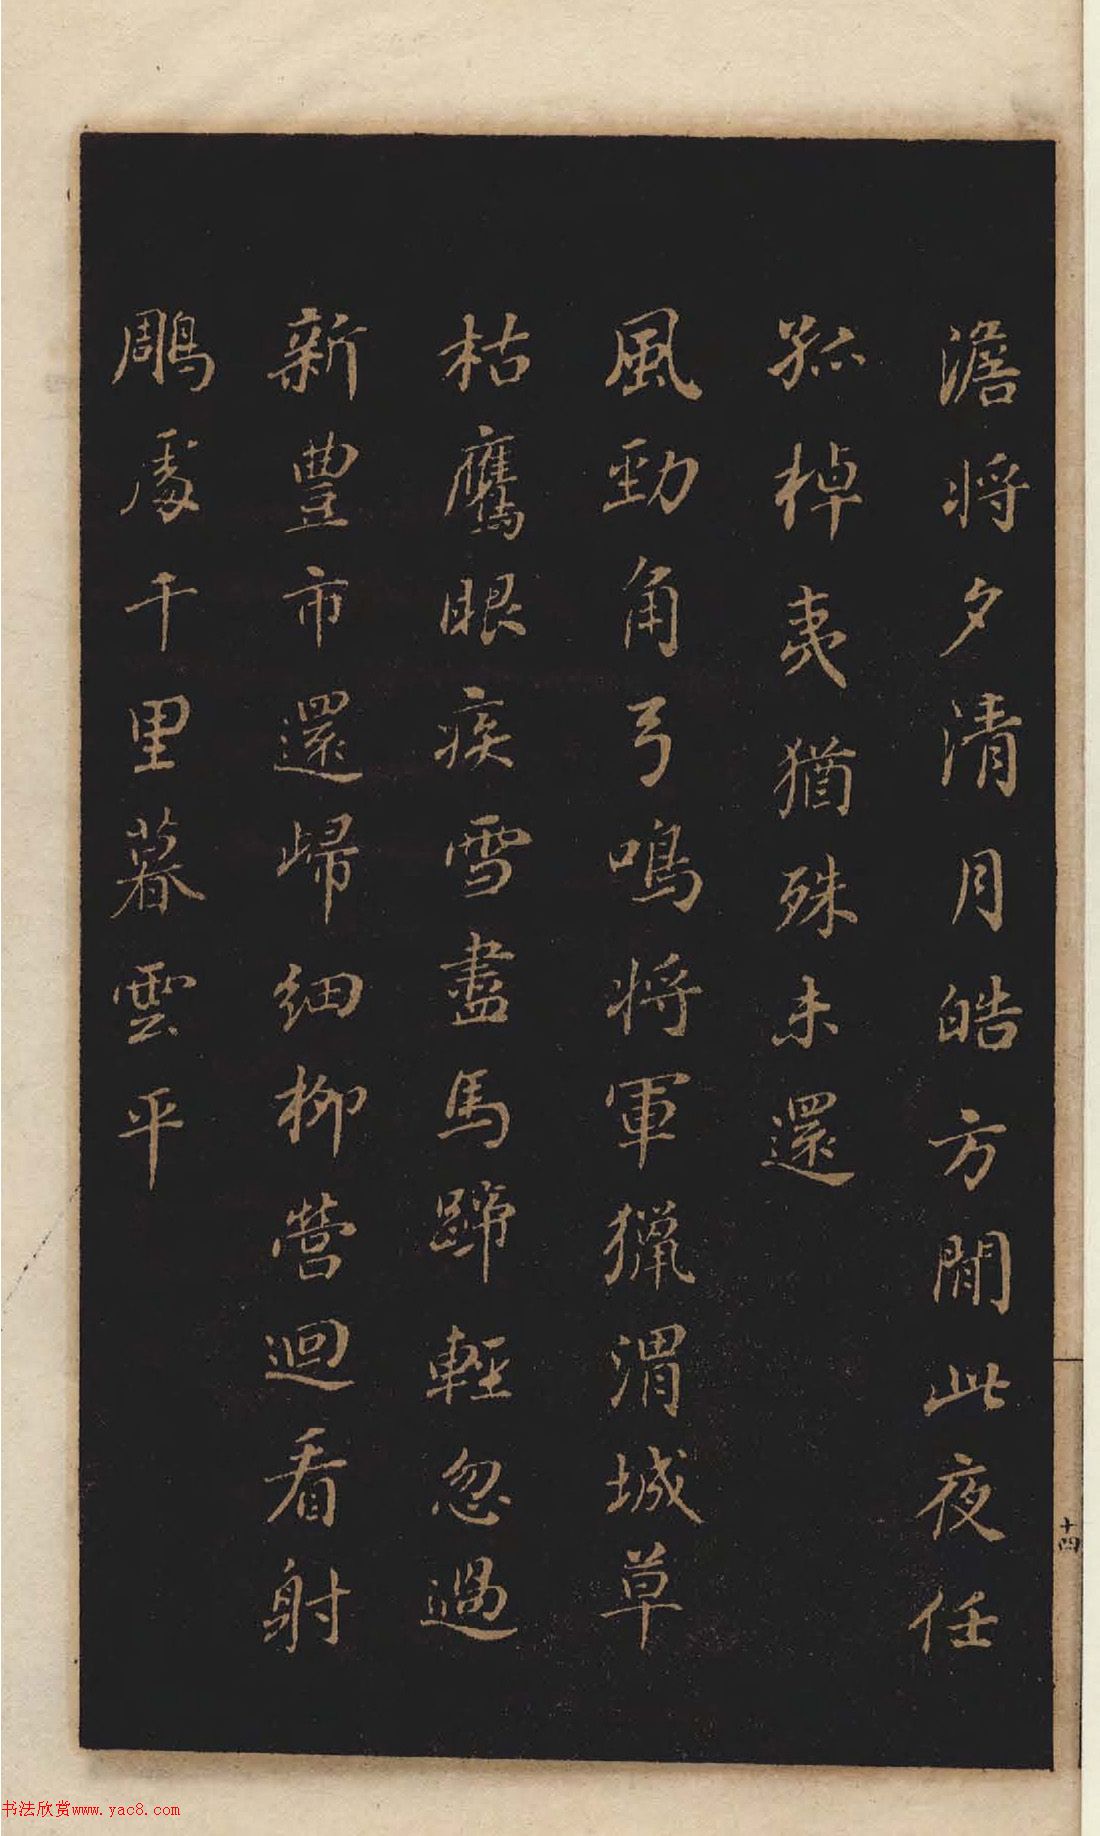 澹將夕清月皓方閒此夜任
孤棹夷猶殊未還
風勁角弓鳴將軍獵渭城草
枯鷹眼疾雪盡馬蹄輕忽過
新豐市還歸細柳營迴看射
鵰處千里暮雲平
十四
书法欣赏www.yac8.com